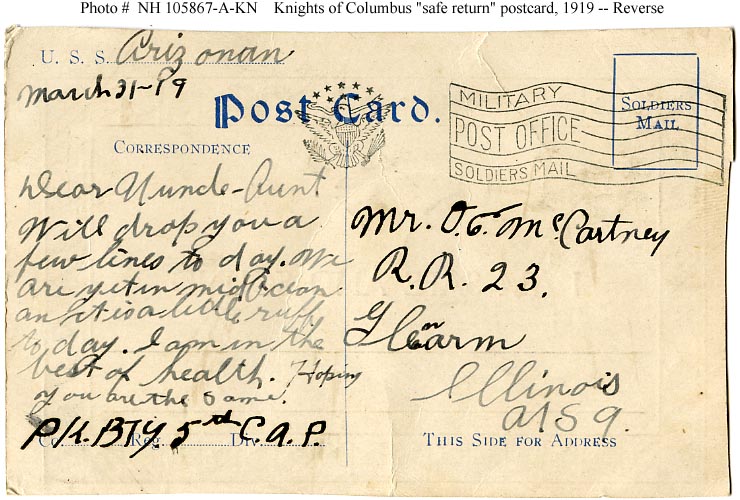 Photo # NH 105867-A-KN Knights of Columbus "safe return" postcard, 1919 -- Reverse
U. S. S. Arizonan
March 31-19
Post Card.
MILITARY
POST OFFICE
SOLDIERS MAIL
SOLDIERS
MAIL
CORRESPONDENCE
Dear Uncle-Aunt
Will drop you a
few lines to day. We
are yet in mid Ocean
an it is a little ruff
to day. I am in the
best of health. Hoping
you are the same.
Co. Reg. Div.
BTY. 5th C.A.P.
Mr. O.E. McCartney
R.R. 23.
Illinois
THIS SIDE FOR ADDRESS